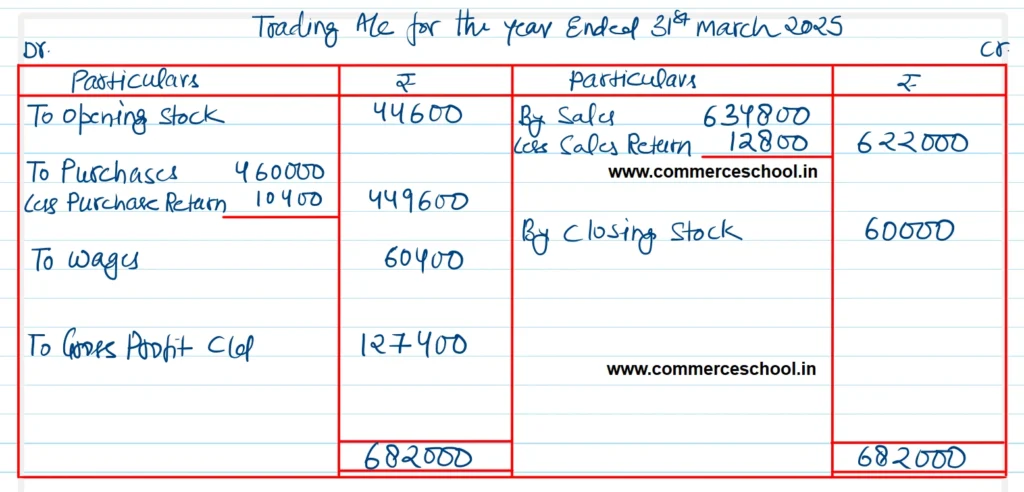 Trading A/c for the year Ended 31st march 2025
Dr. Cr.
Particulars ₹ Particulars ₹
To Opening Stock 44600 By Sales 634800
Less Sales Return 12800 622000
To Purchases 460000 www.commerceschool.in
Less Purchase Return 10400 449600
By Closing Stock 60000
To Wages 60400
To Gross Profit C/d 127400
www.commerceschool.in
682000 682000